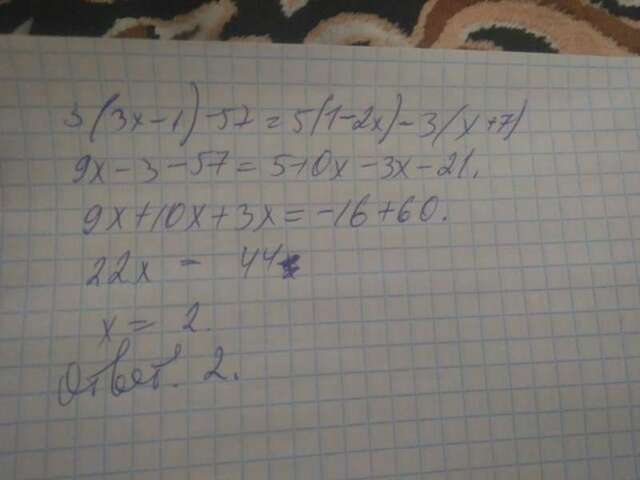 3(3x-1)-57=5(1-2x)-3(x+7)
9x-3-57=5-10x-3x-21.
9x+10x+3x=-16+60.
22x = 44
x = 2.
Ответ. 2.